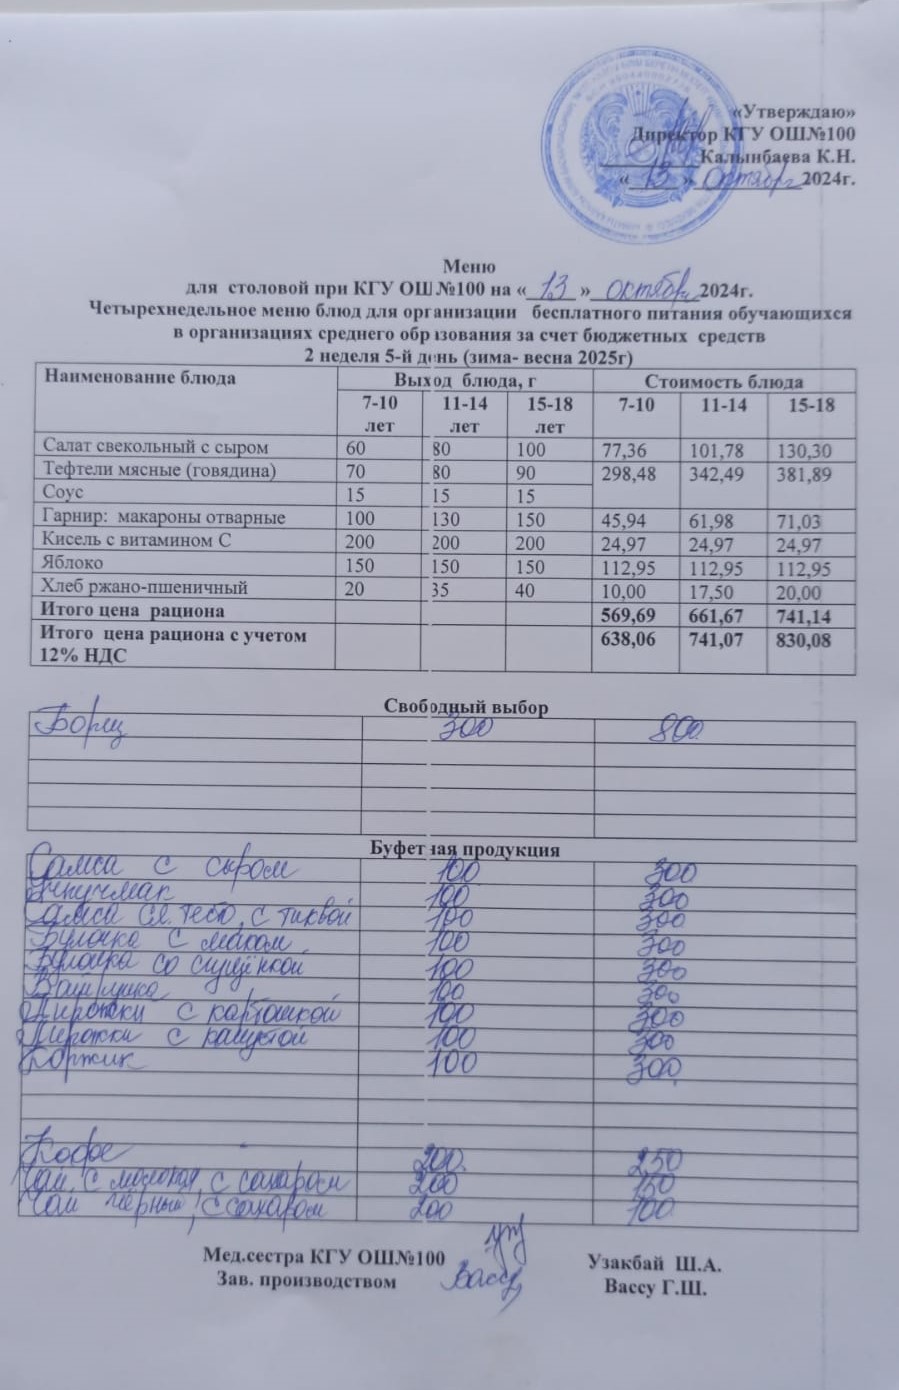 «Утверждаю»
Директор КГУ ОШ№100
Калынбаева К.Н.
« 13 » октября 2024г.
Меню
для столовой при КГУ ОШ №100 на « 13 » октября 2024г.
Четырехнедельное меню блюд для организации бесплатного питания обучающихся
в организациях среднего образования за счет бюджетных средств
2 неделя 5-й день (зима- весна 2025г)
Наименование блюда Выход блюда, г Стоимость блюда
7-10 лет 11-14 лет 15-18 лет 7-10 11-14 15-18
Салат свекольный с сыром 60 80 100 77,36 101,78 130,30
Тефтели мясные (говядина) 70 80 90 298,48 342,49 381,89
Соус 15 15 15
Гарнир: макароны отварные 100 130 150 45,94 61,98 71,03
Кисель с витамином С 200 200 200 24,97 24,97 24,97
Яблоко 150 150 150 112,95 112,95 112,95
Хлеб ржано-пшеничный 20 35 40 10,00 17,50 20,00
Итого цена рациона 569,69 661,67 741,14
Итого цена рациона с учетом 638,06 741,07 830,08
12% НДС
Свободный выбор
Борщ 300 800
Буфетная продукция
Самса с сыром 100 300
Эчпучмак 100 300
Самса сл. тесто, с тыквой 100 300
Булочка с маком 100 300
Булочка со сгущёнкой 100 300
100 300
Пирожки с картошкой 100 300
Пирожки с капустой 100 300
Коржик 100 300
Кофе 200 250
Чай с молоком, с сахаром 200 150
Чай чёрный, с сахаром 200 100
Мед.сестра КГУ ОШ№100 Узакбай Ш.А.
Зав. производством Вассу Вассу Г.Ш.